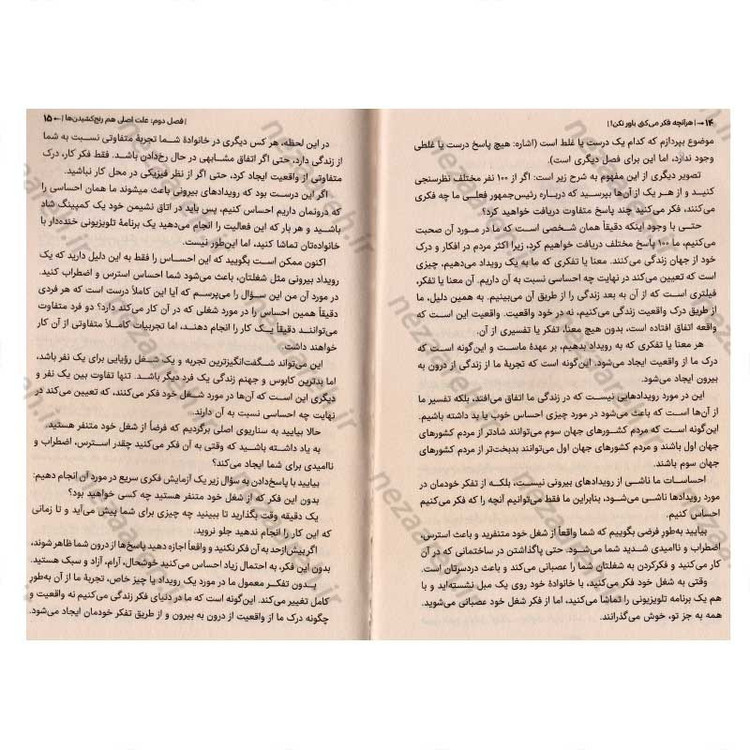 ۱۴ ← | هرآنچه فکر می‌کنی باور نکن! |
موضوع بپردازم که کدام یک درست یا غلط است (اشاره: هیچ پاسخ درست یا غلطی
وجود ندارد، اما این برای فصل دیگری است).
تصویر دیگری از این مفهوم به شرح زیر است: اگر از ۱۰۰ نفر مختلف نظرسنجی
کنید و از هر یک از آن‌ها بپرسید که درباره رئیس‌جمهور فعلی ما چه فکری
می‌کنند، فکر می‌کنید چند پاسخ متفاوت دریافت خواهید کرد؟
حتی با وجود اینکه دقیقاً همان شخصی است که ما در مورد آن صحبت
می‌کنیم، ما ۱۰۰ پاسخ مختلف دریافت خواهیم کرد، زیرا اکثر مردم در افکار و درک
خود از جهان زندگی می‌کنند. معنا یا تفکری که ما به یک رویداد می‌دهیم، چیزی
است که تعیین می‌کند در نهایت چه احساسی نسبت به آن داریم. آن معنا یا تفکر،
فیلتری است که از آن به بعد زندگی را از طریق آن می‌بینیم. به همین دلیل، ما
از طریق درک واقعیت زندگی می‌کنیم، نه در خود واقعیت. واقعیت این است که
واقعه اتفاق افتاده است، بدون هیچ معنا، تفکر یا تفسیری از آن.
هر معنا یا تفکری که به رویداد بدهیم، بر عهدهٔ ماست و این‌گونه است که
درک ما از واقعیت ایجاد می‌شود. این‌گونه است که تجربهٔ ما از زندگی از درون به
بیرون ایجاد می‌شود.
این در مورد رویدادهایی نیست که در زندگی ما اتفاق می‌افتند، بلکه تفسیر ما
از آن‌ها است که باعث می‌شود در مورد چیزی احساس خوب یا بد داشته باشیم.
این‌گونه است که مردم کشورهای جهان سوم می‌توانند شادتر از مردم کشورهای
جهان اول باشند و مردم کشورهای جهان اول می‌توانند بدبخت‌تر از مردم کشورهای
جهان سوم باشند.
احساسات ما ناشی از رویدادهای بیرونی نیست، بلکه از تفکر خودمان در
مورد رویدادها ناشی می‌شود، بنابراین ما فقط می‌توانیم آنچه را که فکر می‌کنیم
احساس کنیم.
بیایید به‌طور فرضی بگوییم که شما واقعاً از شغل خود متنفرید و باعث استرس،
اضطراب و ناامیدی شدید شما می‌شود. حتی پاگذاشتن در ساختمانی که در آن
کار می‌کنید و فکرکردن به شغلتان شما را عصبانی می‌کند و باعث دردسرتان است.
وقتی به شغل خود فکر می‌کنید، با خانوادهٔ خود روی یک مبل نشسته‌اید و با
هم یک برنامه تلویزیونی را تماشا می‌کنید، اما از فکر شغل خود عصبانی می‌شوید.
همه به جز تو، خوش می‌گذرانند.
| فصل دوم: علت اصلی هم رنج‌کشیدن‌ها | → ۱۵
در این لحظه، هر کس دیگری در خانوادهٔ شما تجربهٔ متفاوتی نسبت به شما
از زندگی دارد، حتی اگر اتفاق مشابهی در حال رخ‌دادن باشد. فقط فکر کار، درک
متفاوتی از واقعیت ایجاد کرد، حتی اگر از نظر فیزیکی در محل کار نباشید.
اگر این درست بود که رویدادهای بیرونی باعث میشوند ما همان احساس را
که درونمان داریم احساس کنیم، پس باید در اتاق نشیمن خود یک کمپینگ شاد
باشید و هر بار که این فعالیت را انجام می‌دهید یک برنامهٔ تلویزیونی خنده‌دار با
خانواده‌تان تماشا کنید، اما این‌طور نیست.
اکنون ممکن است بگویید که این احساس را فقط به این دلیل دارید که یک
رویداد بیرونی مثل شغلتان، باعث می‌شود شما احساس استرس و اضطراب کنید.
در مورد آن من این سؤال را می‌پرسم که آیا این کاملاً درست است که هر فردی
دقیقاً همین احساس را در مورد شغلی که در آن کار می‌کند دارد؟ دو فرد متفاوت
می‌توانند دقیقاً یک کار را انجام دهند، اما تجربیات کاملاً متفاوتی از آن کار
خواهند داشت.
این می‌تواند شگفت‌انگیزترین تجربه و یک شغل رؤیایی برای یک نفر باشد،
اما بدترین کابوس و جهنم زندگی یک فرد دیگر باشد. تنها تفاوت بین یک نفر و
دیگری این است که آن‌ها در مورد شغل خود فکر می‌کنند، که تعیین می‌کند در
نهایت چه احساسی نسبت به آن دارند.
حالا بیایید به سناریوی اصلی برگردیم که فرضاً از شغل خود متنفر هستید.
به یاد داشته باشید که وقتی به آن فکر می‌کنید چقدر استرس، اضطراب و
ناامیدی برای شما ایجاد می‌کند؟
بیایید با پاسخ‌دادن به سؤال زیر یک آزمایش فکری سریع در مورد آن انجام دهیم:
بدون این فکر که از شغل خود متنفر هستید چه کسی خواهید بود؟
یک دقیقه وقت بگذارید تا ببینید چه چیزی برای شما پیش می‌آید و تا زمانی
که این کار را انجام ندهید جلو نروید.
اگر بیش‌ازحد به آن فکر نکنید و واقعاً اجازه دهید پاسخ‌ها از درون شما ظاهر شوند،
بدون این فکر، به احتمال زیاد احساس می‌کنید خوشحال، آرام، آزاد و سبک هستید.
بدون تفکر معمول ما در مورد یک رویداد یا چیز خاص، تجربهٔ ما از آن به‌طور
کامل تغییر می‌کند. این‌گونه است که ما در دنیای فکر زندگی می‌کنیم نه واقعیت و
چگونه درک ما از واقعیت از درون به بیرون و از طریق تفکر خودمان ایجاد می‌شود.
nezaareh.ir